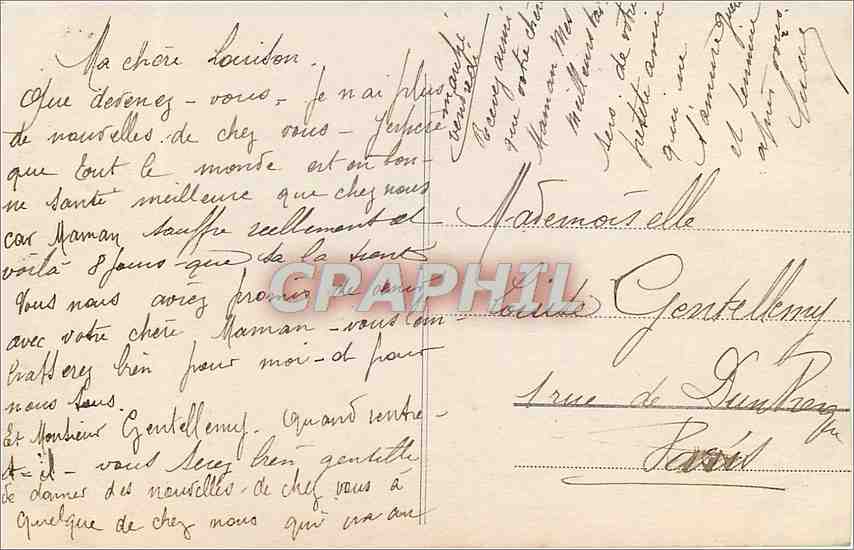 Ma chère Louison.
Que devenez-vous - Je n'ai plus
de nouvelles de chez vous - J'espère
que tout le monde est en bon-
ne santé meilleure que chez nous
car Maman souffre réellement et
voilà 8 jours que sa la tient
Vous nous aviez promis de venir
avec votre chère Maman - vous l'em-
brasserez bien pour moi - et pour
nous tous.
Et Monsieur Gentellemy. Quand rentre-
t-il - vous serez bien gentille
de donner des nouvelles de chez vous à
quelque de chez nous qui va au
marché
vendredi
Recevez ainsi
que votre chère
Maman mes
meilleurs bai
sers de votre
petite amie
qui ne
s'amuse guère
et
après vous
Mademoiselle
Louise Gentellemy
1 rue de Dunkerque
Paris
CRAPHIL